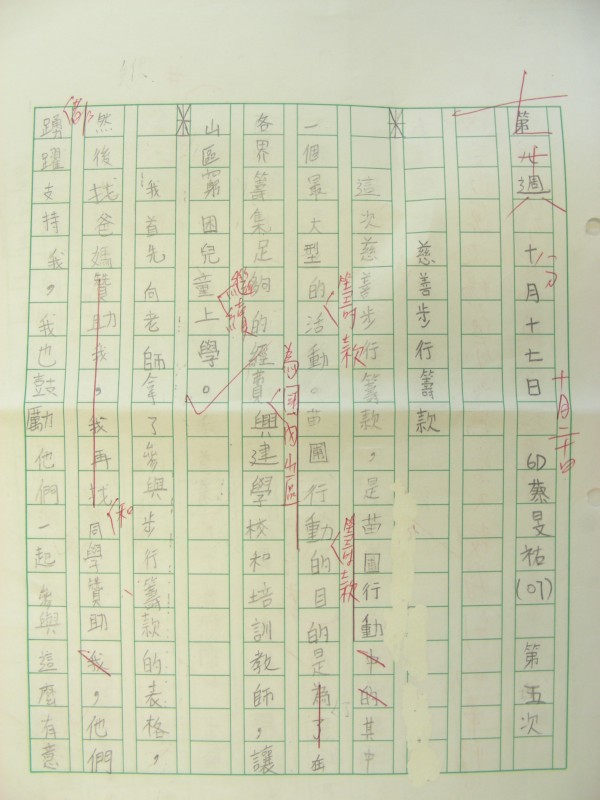 第廿週 十八月十七日 6D 蔡旻祐(07) 第五次
十月二十四
慈善步行籌款
這次慈善步行籌款，是苗圃行動中的其中
一個最大型的活動。苗圃行動的目的是為了在
籌款
籌款
各界籌集足夠的經費興建學校和培訓教師，讓
為中國山區
山區窮困兒童上學。
繼續
我首先向老師拿了參與步行籌款的表格，
然後找爸媽贊助我，我再找同學贊助我，他們
和
都
踴躍支持我，我也鼓勵他們一起參與這麼有意